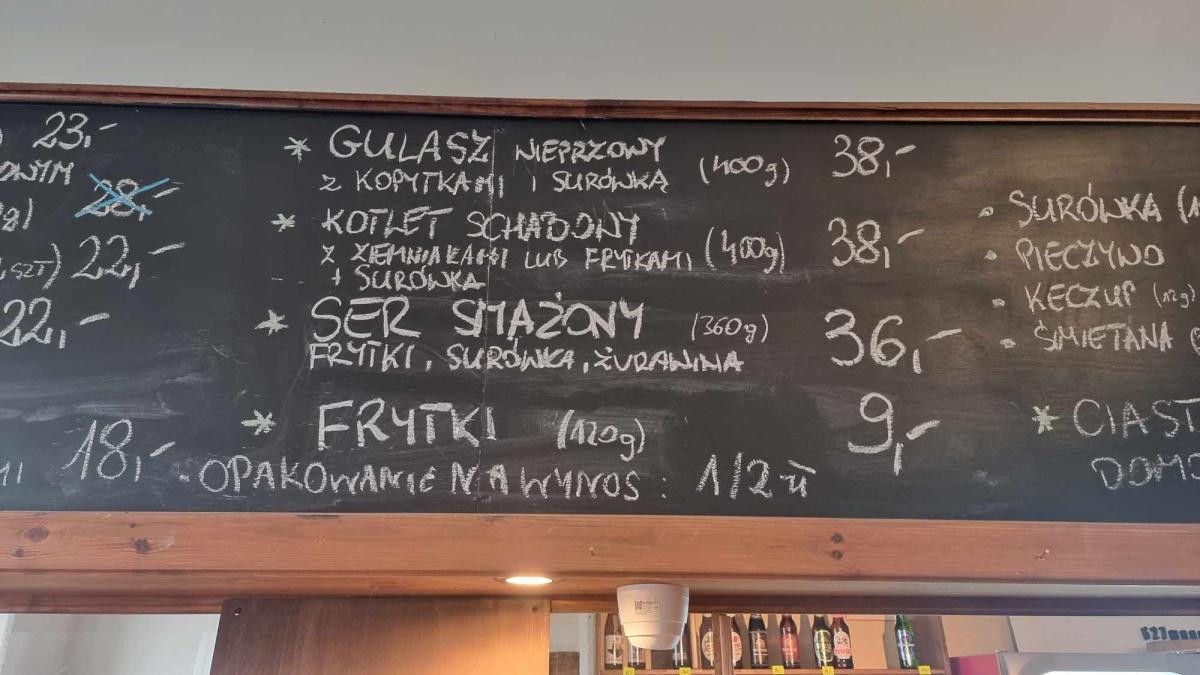 23,-
* GULASZ NIEPRZOWY (400g) 38,-
Z KOPYTKAMI I SURÓWKĄ
28,-
* KOTLET SCHABONY (400g) 38,-
Z ZIEMNIAKAMI LUB FRYTKAMI
+ SURÓWKA
SZT) 22,-
* SER SMAŻONY (360g) 36,-
FRYTKI, SURÓWKA, ŻURAWINA
22,-
* FRYTKI (120g) 9,-
18,-
• OPAKOWANIE NA WYNOS: 1/2 zł
• SURÓWKA
• PIECZYWO
• KECZUP (12g)
• ŚMIETANA
* CIAST
DOMO